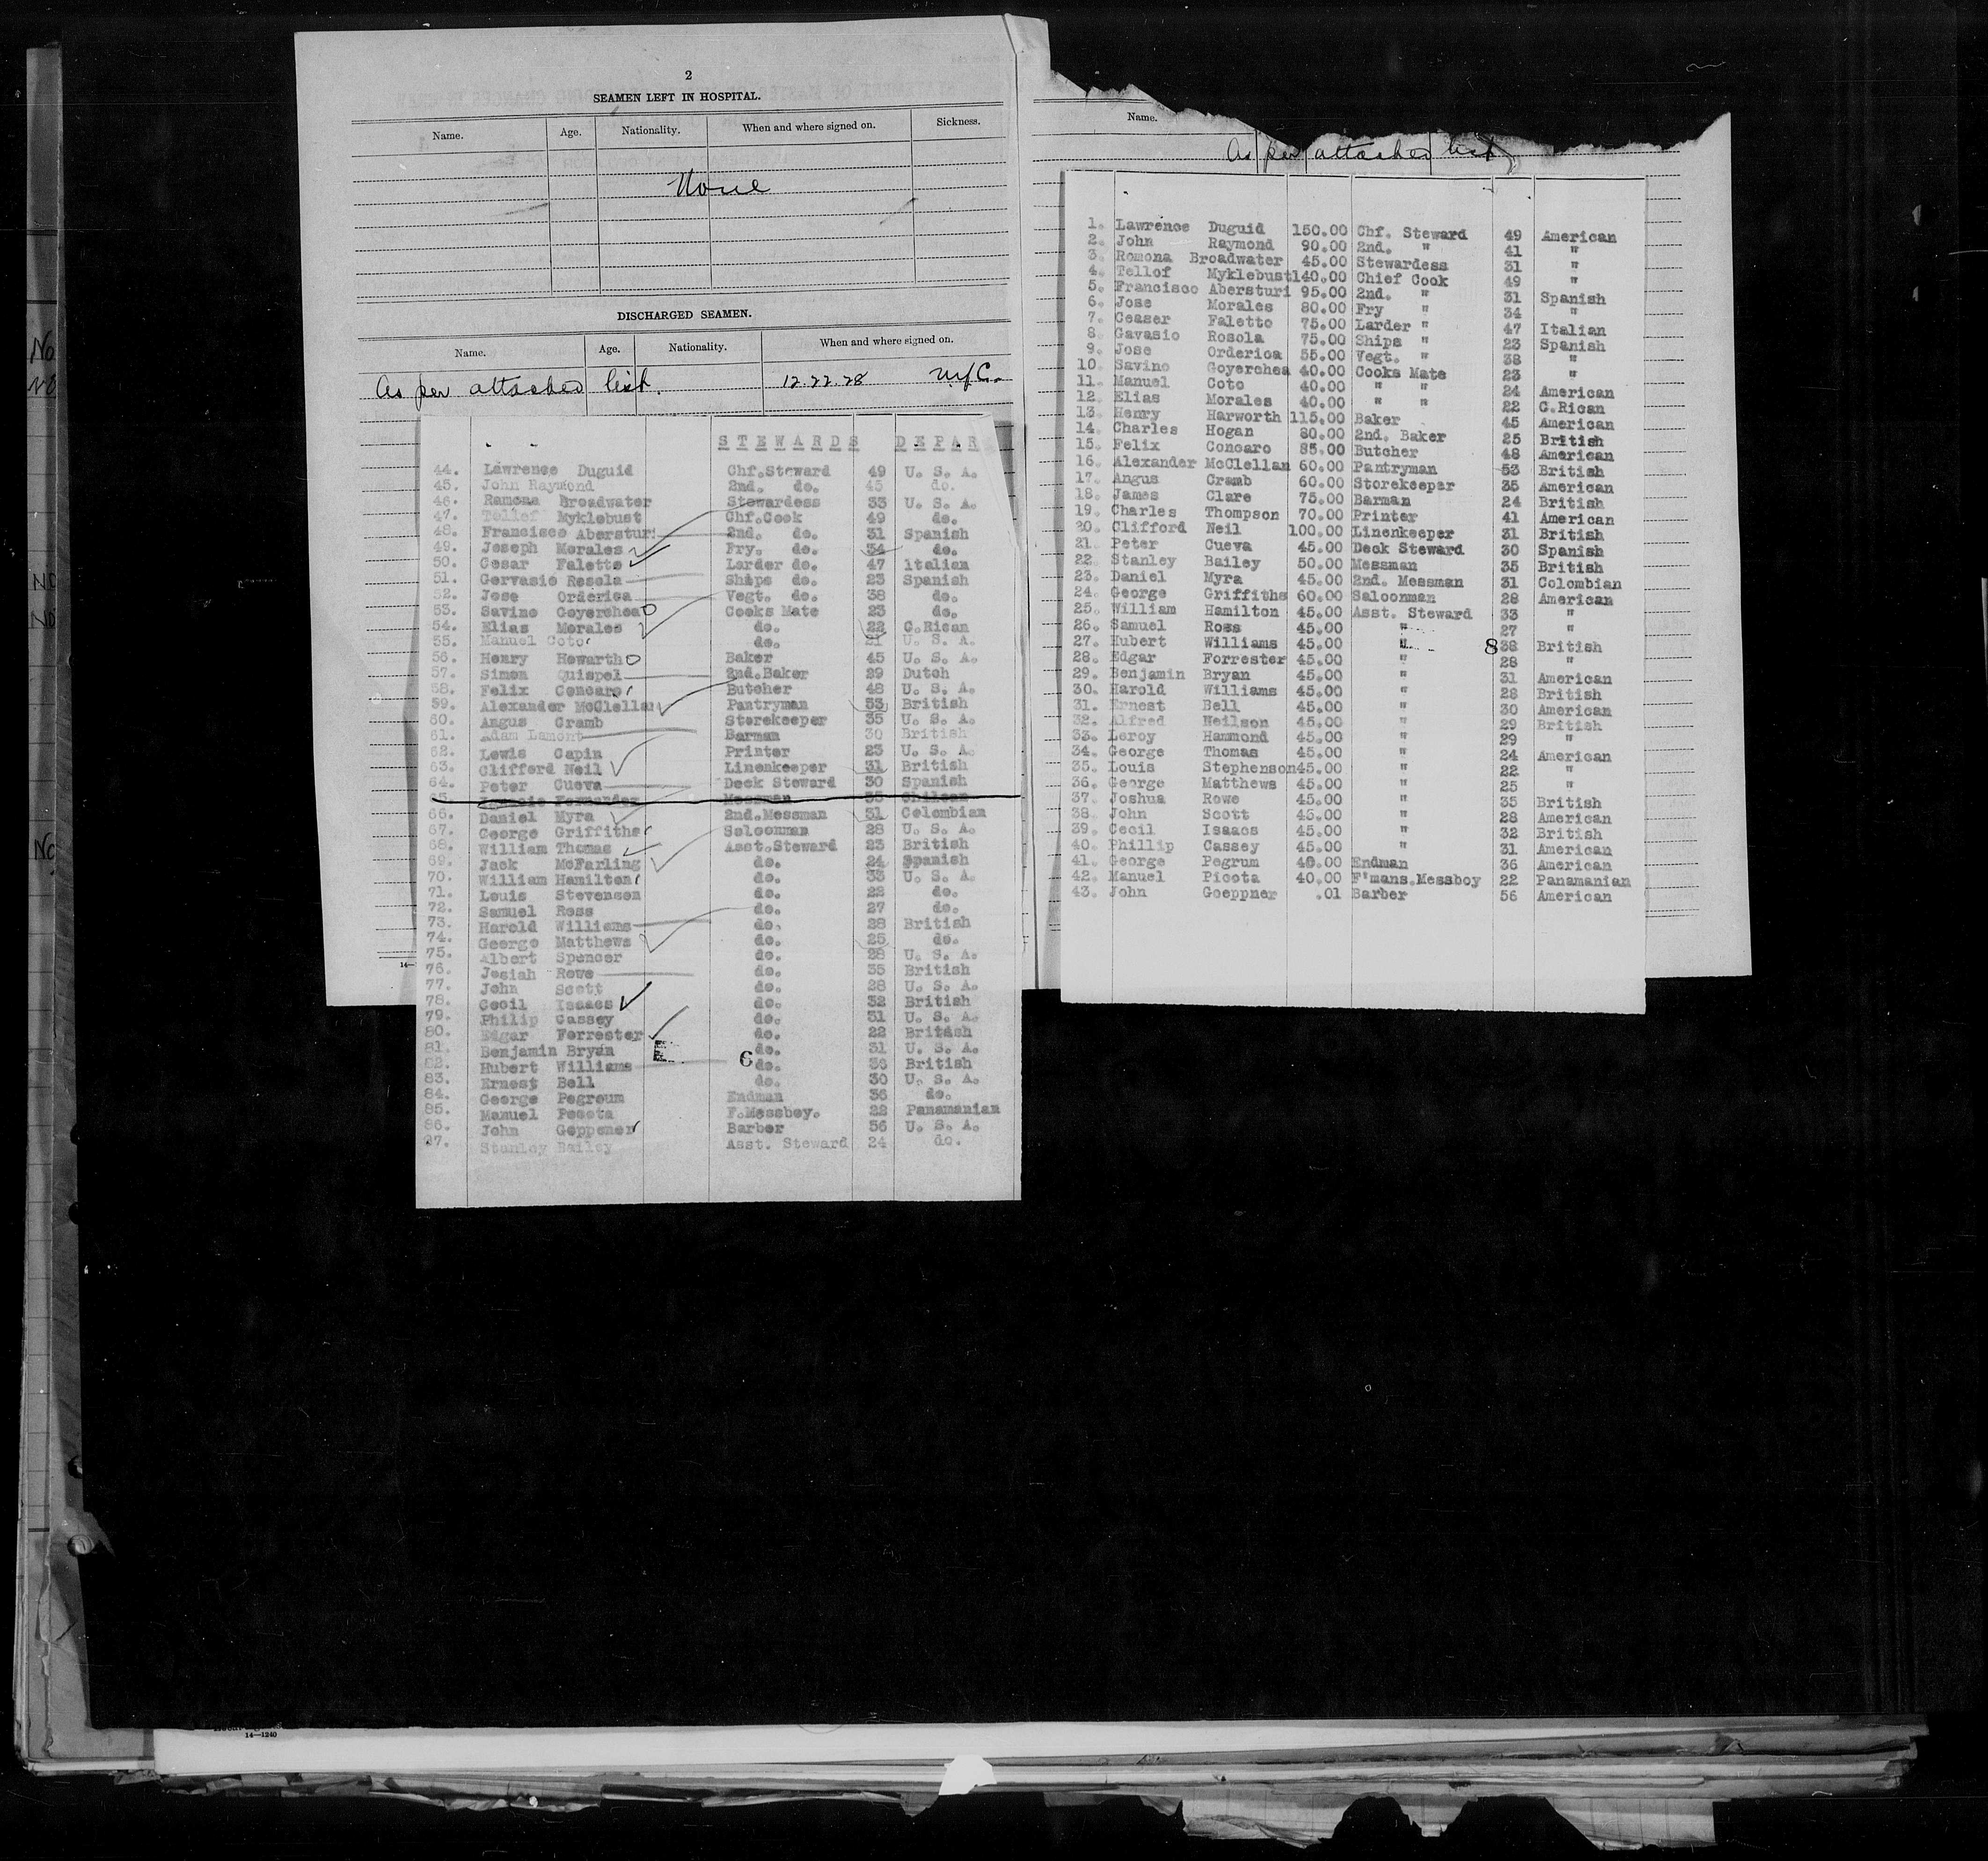 2
SEAMEN LEFT IN HOSPITAL.
Name. Age. Nationality. When and where signed on. Sickness.
None
DISCHARGED SEAMEN.
Name. Age. Nationality. When and where signed on.
As per attached list. 12.22.28 N.Y.C.
STEWARDS DEPAR
44. Lawrence Duguid Chf.Steward 49 U. S. A.
45. John Raymond 2nd. do. 45 do.
46. Ramona Broadwater Stewardess 33 U. S. A.
47. Tellef Myklebust Chf.Cook 49 do.
48. Francisco Abersturi 2nd. do. 31 Spanish
49. Joseph Morales Fry. do. 34 do.
50. Cesar Faletto Larder do. 47 Italian
51. Gervasio Rosola Ships do. 23 Spanish
52. Jose Orderica Vegt. do. 38 do.
53. Savino Goyerchea Cooks Mate 23 do.
54. Elias Morales do. 22 C.Rican
55. Manuel Coto do. 21 U. S. A.
56. Henry Howarth Baker 45 U. S. A.
57. Simon Quispel 2nd.Baker 29 Dutch
58. Felix Concaro Butcher 48 U. S. A.
59. Alexander McClellan Pantryman 53 British
60. Angus Cramb Storekeeper 35 U. S. A.
61. Adam Lamont Barman 30 British
62. Lewis Capin Printer 23 U. S. A.
63. Clifford Neil Linenkeeper 31 British
64. Peter Cueva Deck Steward 30 Spanish
65. Fernandez Messman 35 Chilean
66. Daniel Myra 2nd.Messman 31 Colombian
67. George Griffiths Saloonman 28 U. S. A.
68. William Thomas Asst.Steward 23 British
69. Jack McFarling do. 24 Spanish
70. William Hamilton do. 33 U. S. A.
71. Louis Stevenson do. 22 do.
72. Samuel Ross do. 27 do.
73. Harold Williams do. 28 British
74. George Matthews do. 25 do.
75. Albert Spencer do. 28 U. S. A.
76. Josiah Rowe do. 35 British
77. John Scott do. 28 U. S. A.
78. Cecil Isaacs do. 32 British
79. Philip Cassey do. 31 U. S. A.
80. Edgar Forrester do. 22 British
81. Benjamin Bryan do. 31 U. S. A.
82. Hubert Williams 6 do. 38 British
83. Ernest Bell do. 30 U. S. A.
84. George Pegroum Endman 36 do.
85. Manuel Pecota F.Messboy. 22 Panamanian
86. John Geppener Barber 56 U. S. A.
87. Stanley Bailey Asst. Steward 24 do.
14—
Name.
As per attached list
1. Lawrence Duguid 150.00 Chf. Steward 49 American
2. John Raymond 90.00 2nd. " 41 "
3. Romona Broadwater 45.00 Stewardess 31 "
4. Tellof Myklebust 140.00 Chief Cook 49 "
5. Francisco Abersturi 95.00 2nd. " 31 Spanish
6. Jose Morales 80.00 Fry " 34 "
7. Ceaser Faletto 75.00 Larder " 47 Italian
8. Gavasio Rosola 75.00 Ships " 23 Spanish
9. Jose Orderica 55.00 Vegt. " 38 "
10. Savino Goyerchea 40.00 Cooks Mate 23 "
11. Manuel Coto 40.00 " " 24 American
12. Elias Morales 40.00 " " 22 C.Rican
13. Henry Harworth 115.00 Baker 45 American
14. Charles Hogan 80.00 2nd. Baker 25 British
15. Felix Concaro 85.00 Butcher 48 American
16. Alexander McClellan 60.00 Pantryman 53 British
17. Angus Cramb 60.00 Storekeeper 35 American
18. James Clare 75.00 Barman 24 British
19. Charles Thompson 70.00 Printer 41 American
20. Clifford Neil 100.00 Linenkeeper 31 British
21. Peter Cueva 45.00 Deck Steward 30 Spanish
22. Stanley Bailey 50.00 Messman 35 British
23. Daniel Myra 45.00 2nd. Messman 31 Colombian
24. George Griffiths 60.00 Saloonman 28 American
25. William Hamilton 45.00 Asst. Steward 33 "
26. Samuel Ross 45.00 " 27 "
27. Hubert Williams 45.00 " 8 38 British
28. Edgar Forrester 45.00 " 28 "
29. Benjamin Bryan 45.00 " 31 American
30. Harold Williams 45.00 " 28 British
31. Ernest Bell 45.00 " 30 American
32. Alfred Neilson 45.00 " 29 British
33. Leroy Hammond 45.00 " 29 "
34. George Thomas 45.00 " 24 American
35. Louis Stephenson 45.00 " 22 "
36. George Matthews 45.00 " 25 "
37. Joshua Rowe 45.00 " 35 British
38. John Scott 45.00 " 28 American
39. Cecil Isaacs 45.00 " 32 British
40. Phillip Cassey 45.00 " 31 American
41. George Pegrum 40.00 Endman 36 American
42. Manuel Picota 40.00 F'mans.Messboy 22 Panamanian
43. John Goeppner .01 Barber 56 American
14—1240